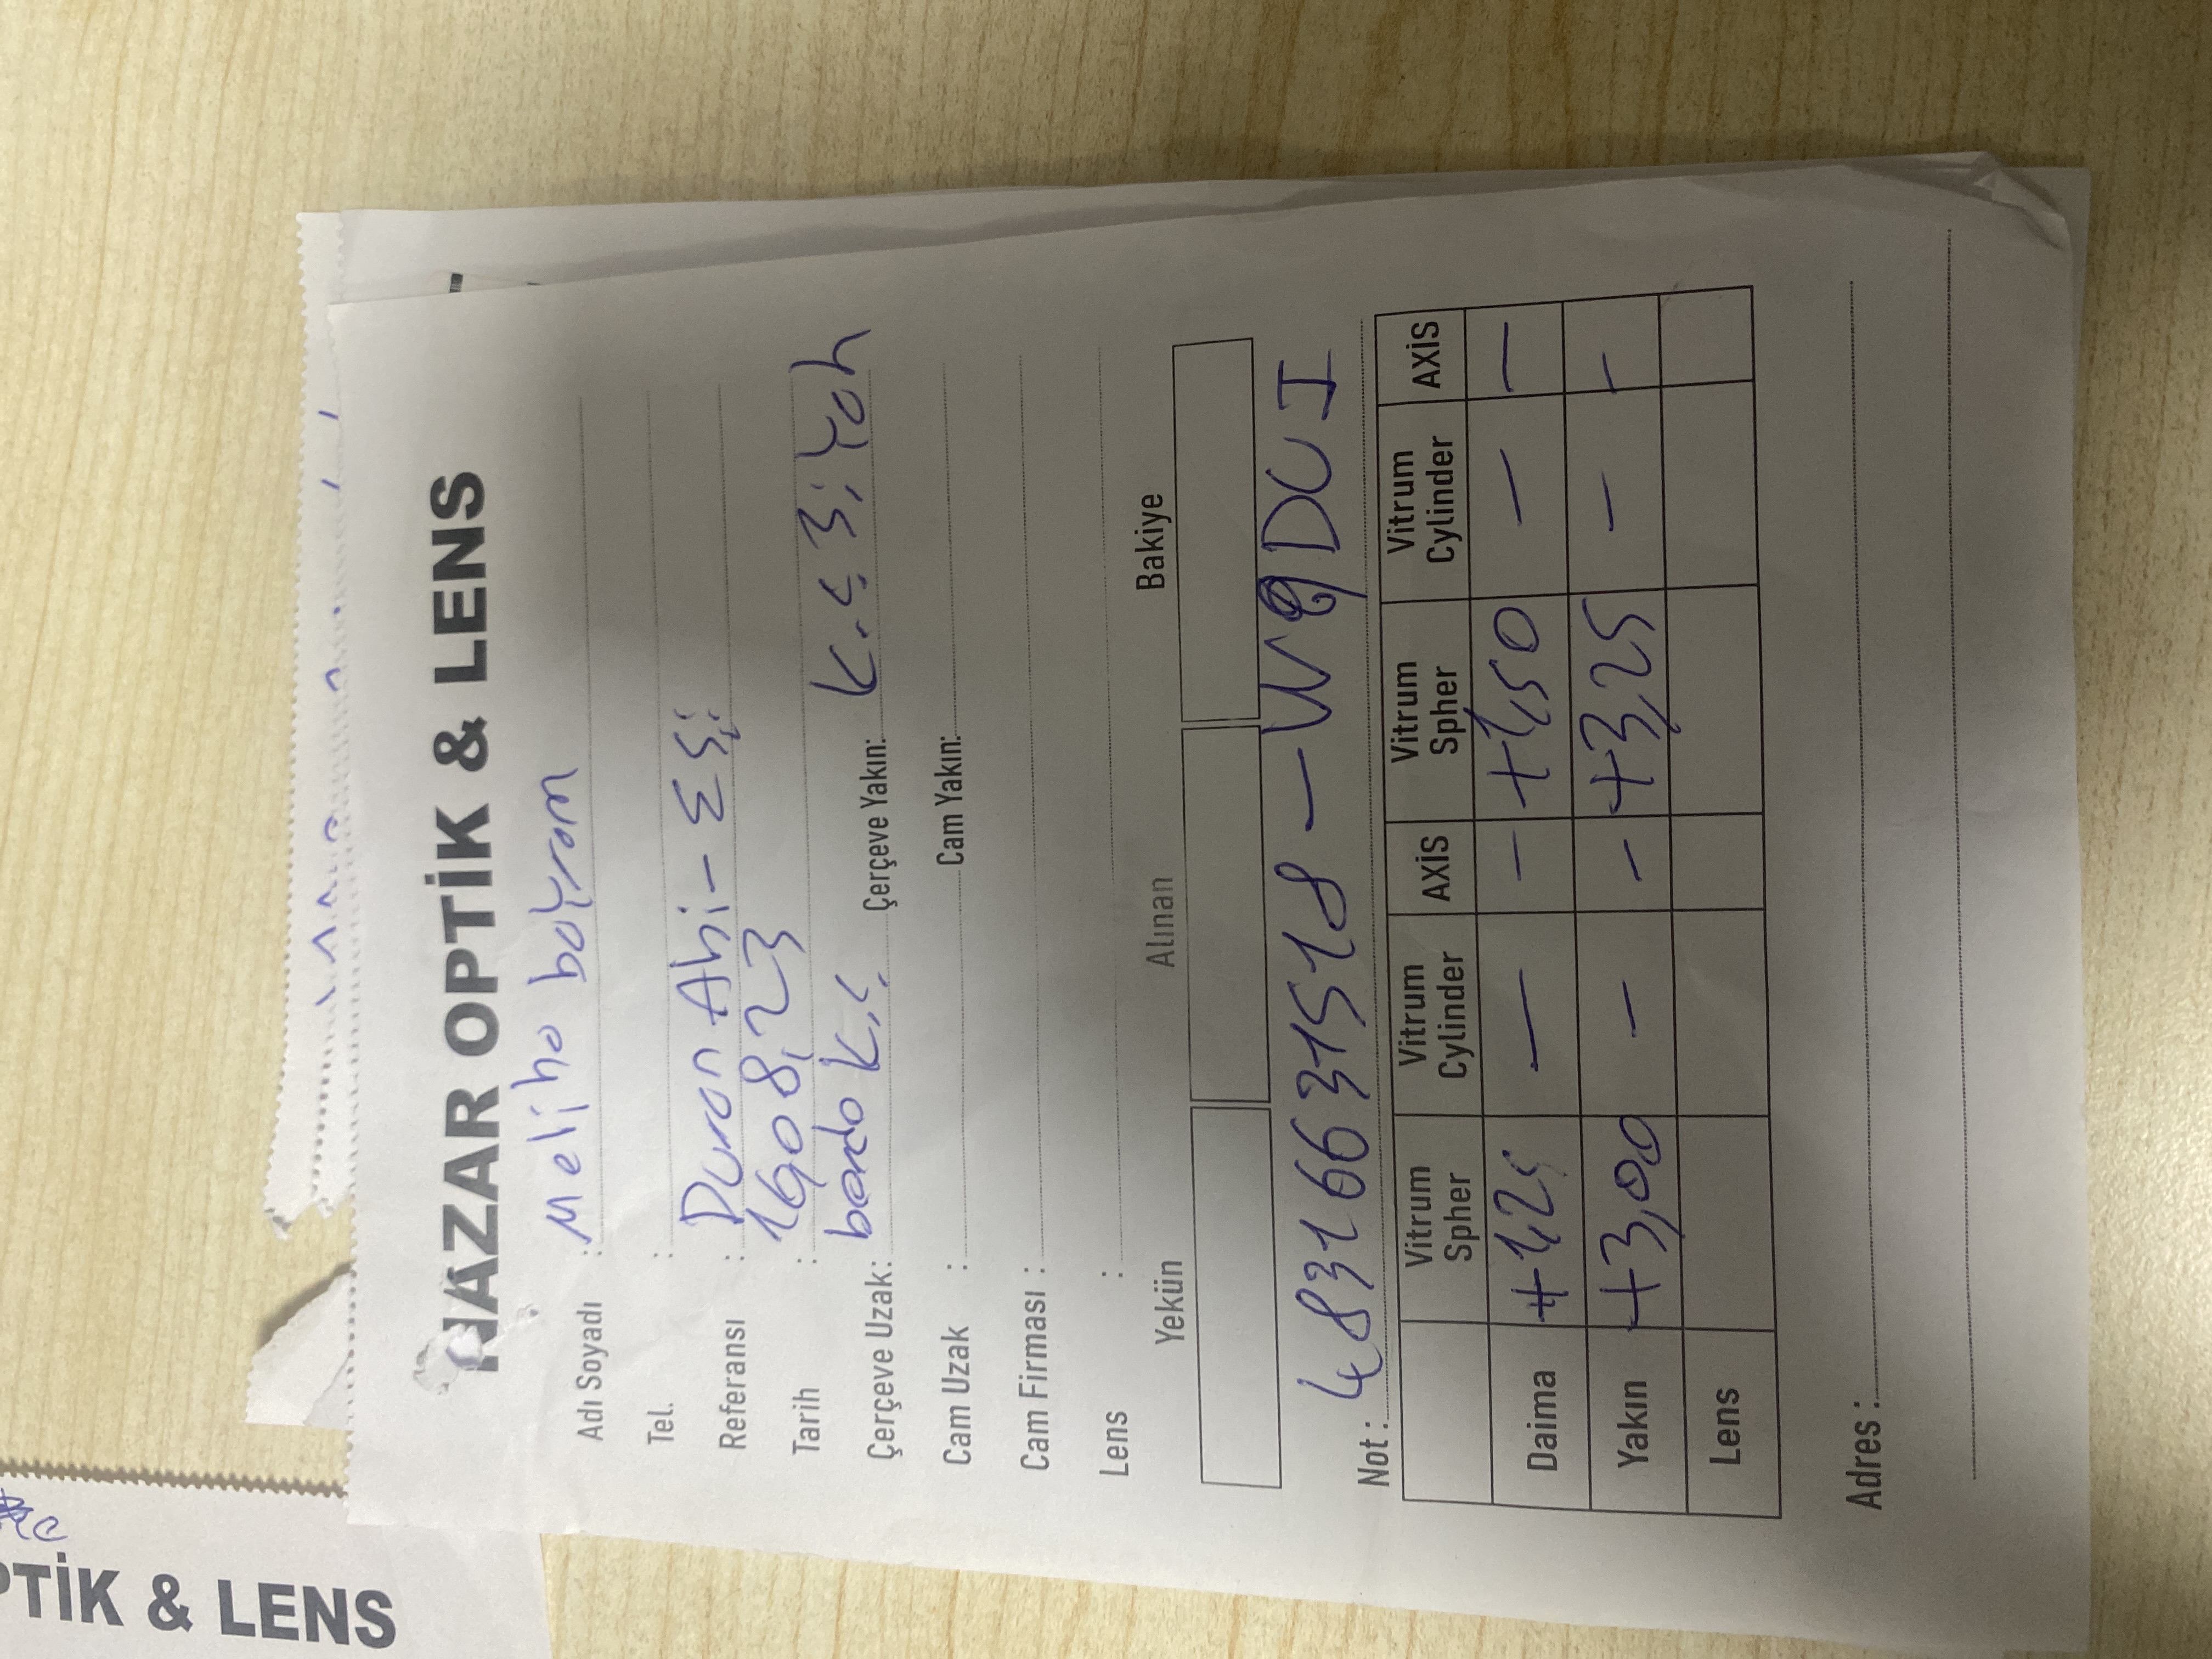 PTİK & LENS
NAZAR OPTİK & LENS
Adı Soyadı : Meliha bayram
Tel. :
Referansı : Duran Abi - Eşi
Tarih : 16.08.23
Çerçeve Uzak: bordo K.Ç Çerçeve Yakın: K.Ç Siyah
Cam Uzak : Cam Yakın:
Cam Firması :
Lens :
Yekün Alınan Bakiye
Not : 48316631518 - W9DUI
Vitrum Spher Vitrum Cylinder AXİS Vitrum Spher Vitrum Cylinder AXİS
Daima +1,25 — - +1,50 — —
Yakın +3,00 - - +3,25 - -
Lens
Adres :